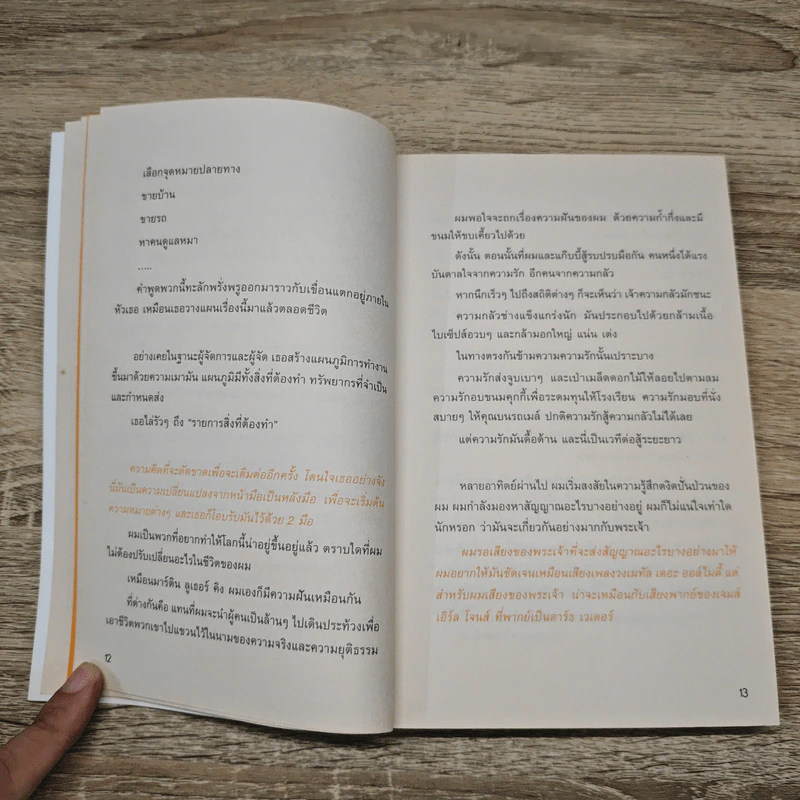 เลือกจุดหมายปลายทาง
ขายบ้าน
ขายรถ
หาคนดูแลหมา
.....
คำพูดพวกนี้ทะลักพรั่งพรูออกมาราวกับเขื่อนแตกอยู่ภายใน
หัวเธอ เหมือนเธอวางแผนเรื่องนี้มาแล้วตลอดชีวิต
อย่างเคยในฐานะผู้จัดการและผู้จัด เธอสร้างแผนภูมิการทำงาน
ขึ้นมาด้วยความเมามัน แผนภูมิมีทั้งสิ่งที่ต้องทำ ทรัพยากรที่จำเป็น
และกำหนดส่ง
เธอไล่รัวๆ ถึง “รายการสิ่งที่ต้องทำ”
ความคิดที่จะตัดขาดเพื่อจะเติมต่ออีกครั้ง โดนใจเธออย่างจัง
นี่มันเป็นความเปลี่ยนแปลงจากหน้ามือเป็นหลังมือ เพื่อจะเริ่มต้น
ความหมายต่างๆ และเธอก็โอบรับมันไว้ด้วย 2 มือ
ผมเป็นพวกที่อยากทำให้โลกนี้น่าอยู่ขึ้นอยู่แล้ว ตราบใดที่ผม
ไม่ต้องปรับเปลี่ยนอะไรในชีวิตของผม
เหมือนมาร์ติน ลูเธอร์ คิง ผมเองก็มีความฝันเหมือนกัน
ที่ต่างกันคือ แทนที่ผมจะนำผู้คนเป็นล้านๆ ไปเดินประท้วงเพื่อ
เอาชีวิตพวกเขาไปแขวนไว้ในนามของความจริงและความยุติธรรม
12
ผมพอใจจะถกเรื่องความฝันของผม ด้วยความก้ำกึ่งและมี
ขนมให้ขบเคี้ยวไปด้วย
ดังนั้น ตอนนั้นที่ผมและแก๊บบี้สู้รบปรบมือกัน คนหนึ่งได้แรง
บันดาลใจจากความรัก อีกคนจากความกลัว
หากนึกเร็วๆ ไปถึงสถิติต่างๆ ก็จะเห็นว่า เจ้าความกลัวมักชนะ
ความกลัวช่างแข็งแกร่งนัก มันประกอบไปด้วยกล้ามเนื้อ
ไบเซ็ปส์อวบๆ และกล้ามอกใหญ่ แน่น เต่ง
ในทางตรงกันข้ามความความรักนั้นเปราะบาง
ความรักส่งจูบเบาๆ และเป่าเมล็ดดอกไม้ให้ลอยไปตามลม
ความรักอบขนมคุกกี้เพื่อระดมทุนให้โรงเรียน ความรักมอบที่นั่ง
สบายๆ ให้คุณบนรถเมล์ ปกติความรักสู้ความกลัวไม่ได้เลย
แต่ความรักมันดื้อด้าน และนี่เป็นเวทีต่อสู้ระยะยาว
หลายอาทิตย์ผ่านไป ผมเริ่มสงสัยในความรู้สึกตงิดปั่นป่วนของ
ผม ผมกำลังมองหาสัญญาณอะไรบางอย่างอยู่ ผมก็ไม่แน่ใจเท่าใด
นักหรอก ว่ามันจะเกี่ยวกันอย่างมากกับพระเจ้า
ผมรอเสียงของพระเจ้าที่จะส่งสัญญาณอะไรบางอย่างมาให้
ผมอยากให้มันชัดเจนเหมือนเสียงเพลงวงเมทัล เดอะ ออล์ไมตี้ แต่
สำหรับผมเสียงของพระเจ้า น่าจะเหมือนกับเสียงพากย์ของเจมส์
เอิร์ล โจนส์ ที่พากย์เป็นดาร์ธ เวเดอร์
13